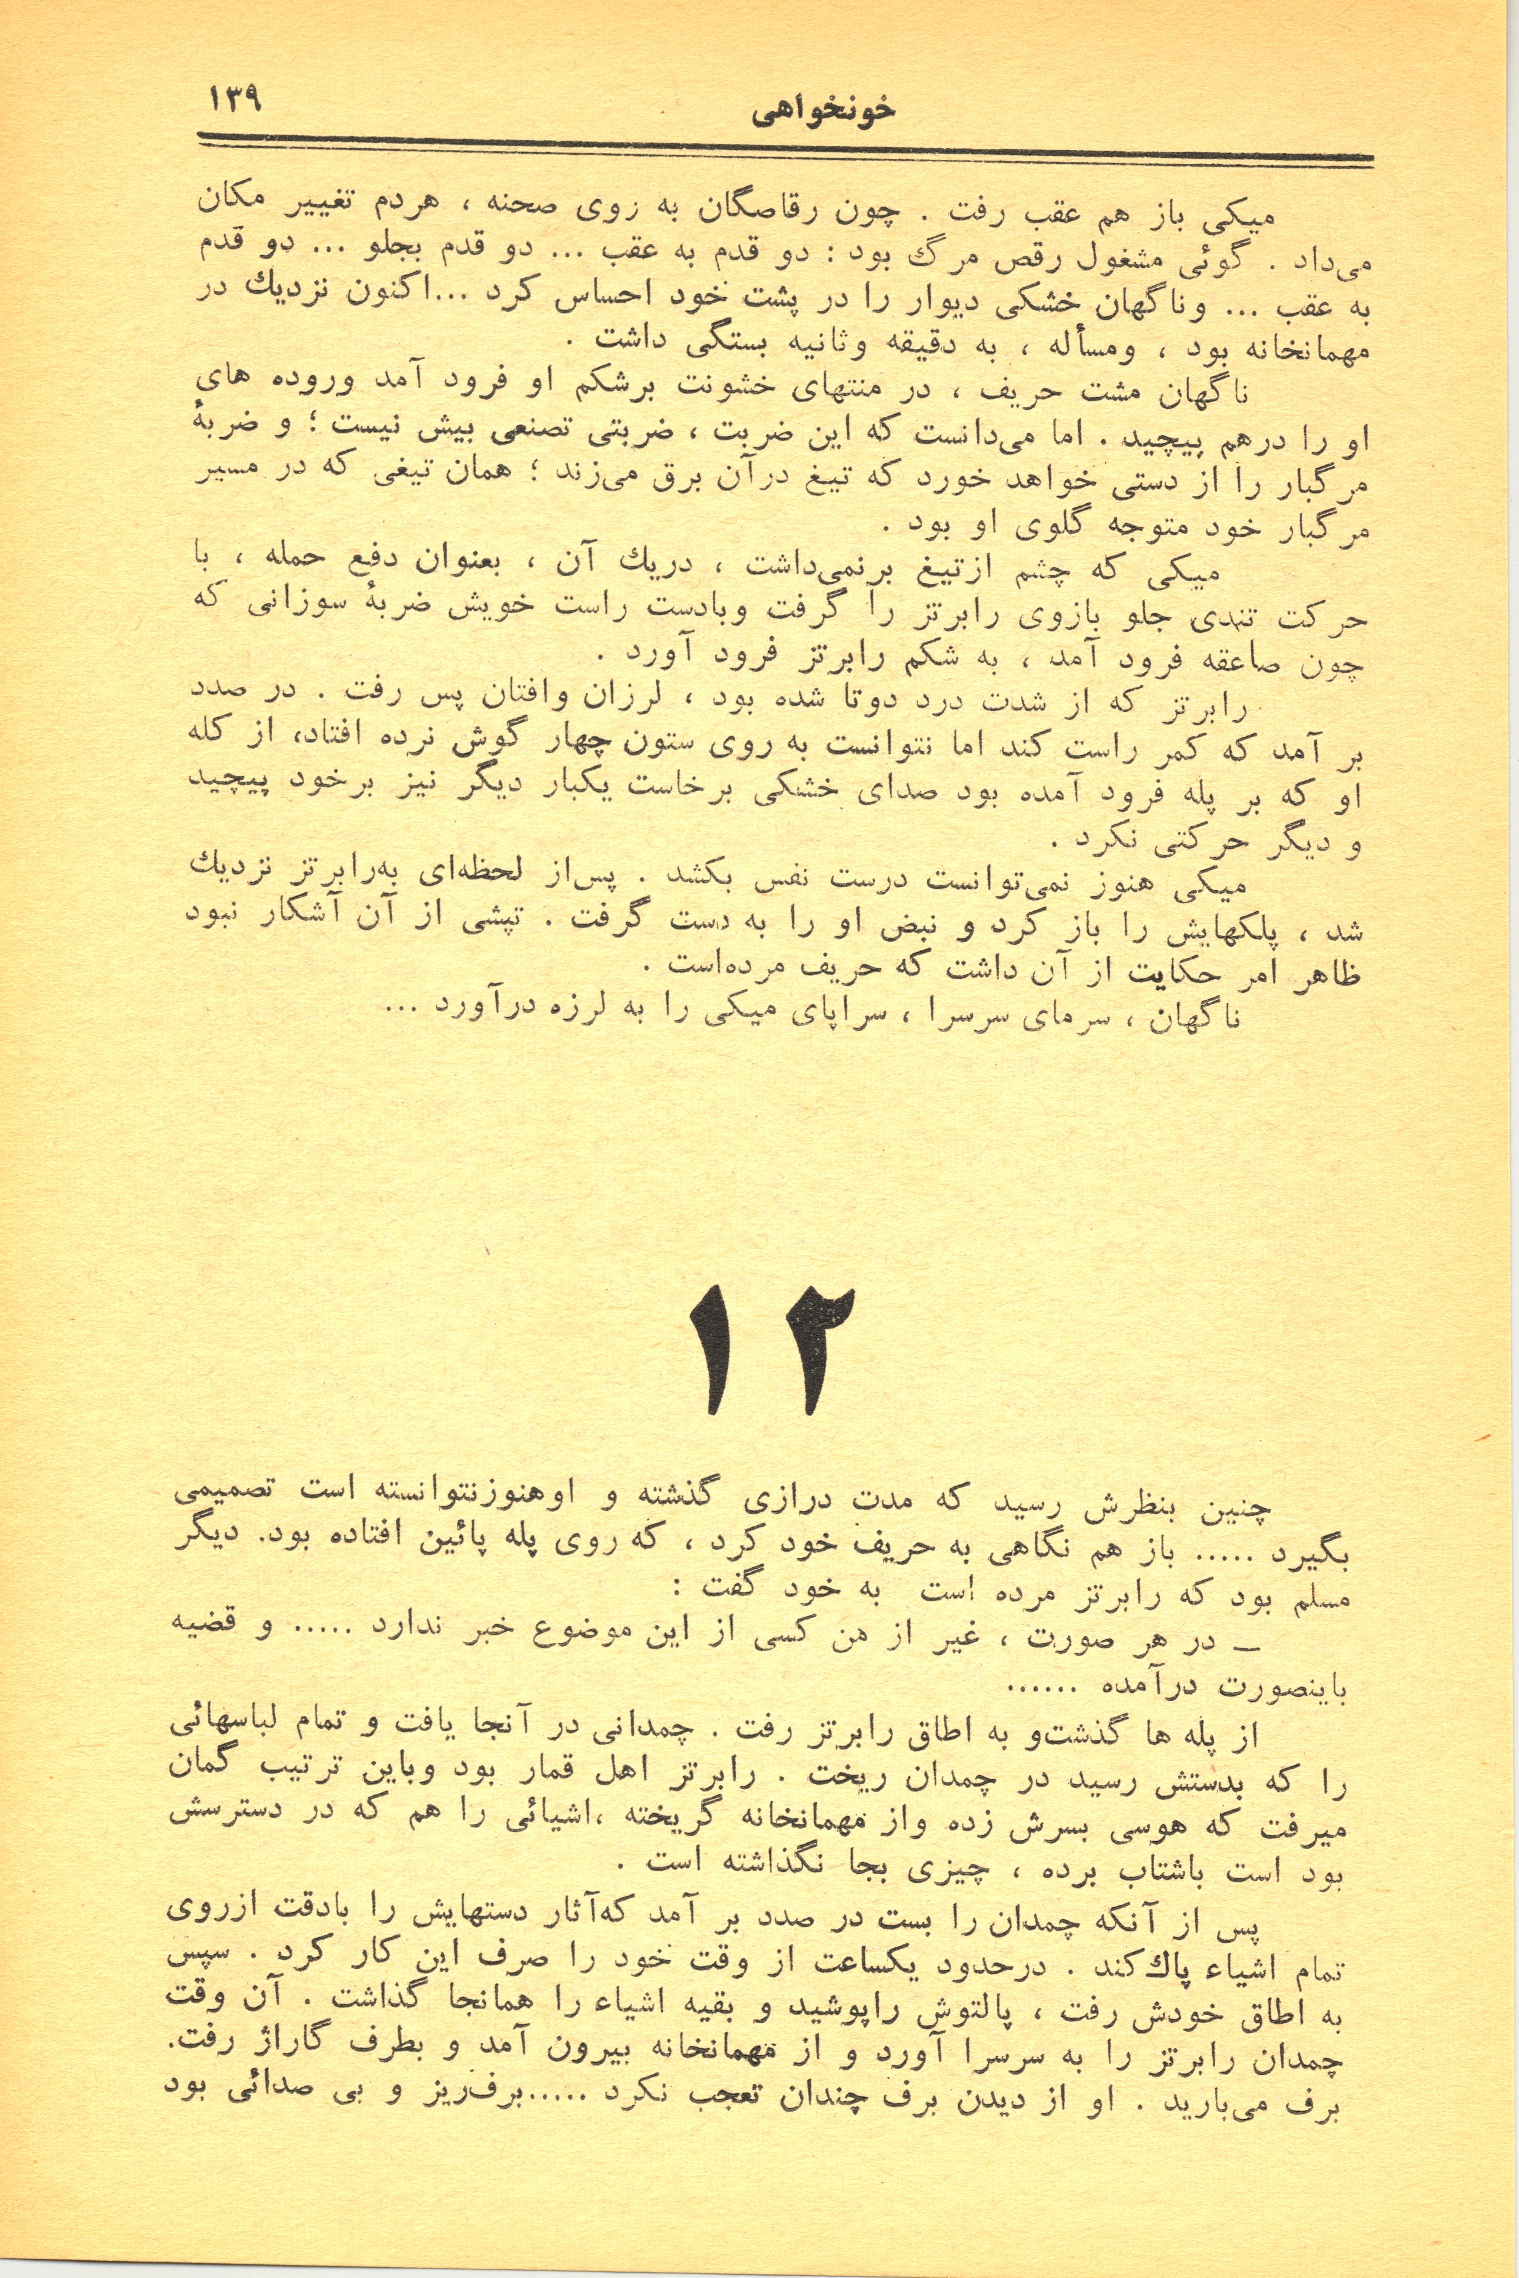 خونخواهی
۱۳۹
میکی باز هم عقب رفت . چون رقاصگان به روی صحنه ، هردم تغییر مکان
می‌داد . گوئی مشغول رقص مرگ بود : دو قدم به عقب ... دو قدم بجلو ... دو قدم
به عقب ... وناگهان خشکی دیوار را در پشت خود احساس کرد ...اکنون نزدیك در
مهمانخانه بود ، ومسأله ، به دقیقه وثانیه بستگی داشت .
ناگهان مشت حریف ، در منتهای خشونت برشکم او فرود آمد وروده های
او را درهم پیچید . اما می‌دانست که این ضربت ، ضربتی تصنعی بیش نیست ؛ و ضربهٔ
مرگبار را از دستی خواهد خورد که تیغ درآن برق می‌زند ؛ همان تیغی که در مسیر
مرگبار خود متوجه گلوی او بود .
میکی که چشم ازتیغ برنمی‌داشت ، دریك آن ، بعنوان دفع حمله ، با
حرکت تندی جلو بازوی رابرتز را گرفت وبادست راست خویش ضربهٔ سوزانی که
چون صاعقه فرود آمد ، به شکم رابرتز فرود آورد .
رابرتز که از شدت درد دوتا شده بود ، لرزان وافتان پس رفت . در صدد
بر آمد که کمر راست کند اما نتوانست به روی ستون چهار گوش نرده افتاد، از کله
او که بر پله فرود آمده بود صدای خشکی برخاست یکبار دیگر نیز برخود پیچید
و دیگر حرکتی نکرد .
میکی هنوز نمی‌توانست درست نفس بکشد . پس‌از لحظه‌ای به‌رابرتز نزدیك
شد ، پلکهایش را باز کرد و نبض او را به دست گرفت . تپشی از آن آشکار نبود
ظاهر امر حکایت از آن داشت که حریف مرده‌است .
ناگهان ، سرمای سرسرا ، سراپای میکی را به لرزه درآورد ...
۱۲
چنین بنظرش رسید که مدت درازی گذشته و اوهنوزنتوانسته است تصمیمی
بگیرد ..... باز هم نگاهی به حریف خود کرد ، که روی پله پائین افتاده بود. دیگر
مسلم بود که رابرتز مرده است به خود گفت :
— در هر صورت ، غیر از من کسی از این موضوع خبر ندارد ..... و قضیه
باینصورت درآمده ......
از پله ها گذشت‌و به اطاق رابرتز رفت . چمدانی در آنجا یافت و تمام لباسهائی
را که بدستش رسید در چمدان ریخت . رابرتز اهل قمار بود وباین ترتیب گمان
میرفت که هوسی بسرش زده واز مهمانخانه گریخته ،اشیائی را هم که در دسترسش
بود است باشتاب برده ، چیزی بجا نگذاشته است .
پس از آنکه چمدان را بست در صدد بر آمد که‌آثار دستهایش را بادقت ازروی
تمام اشیاء پاك‌کند . درحدود یکساعت از وقت خود را صرف این کار کرد . سپس
به اطاق خودش رفت ، پالتوش راپوشید و بقیه اشیاء را همانجا گذاشت . آن وقت
چمدان رابرتز را به سرسرا آورد و از مهمانخانه بیرون آمد و بطرف گاراژ رفت.
برف می‌بارید . او از دیدن برف چندان تعجب نکرد .....برف‌ریز و بی صدائی بود